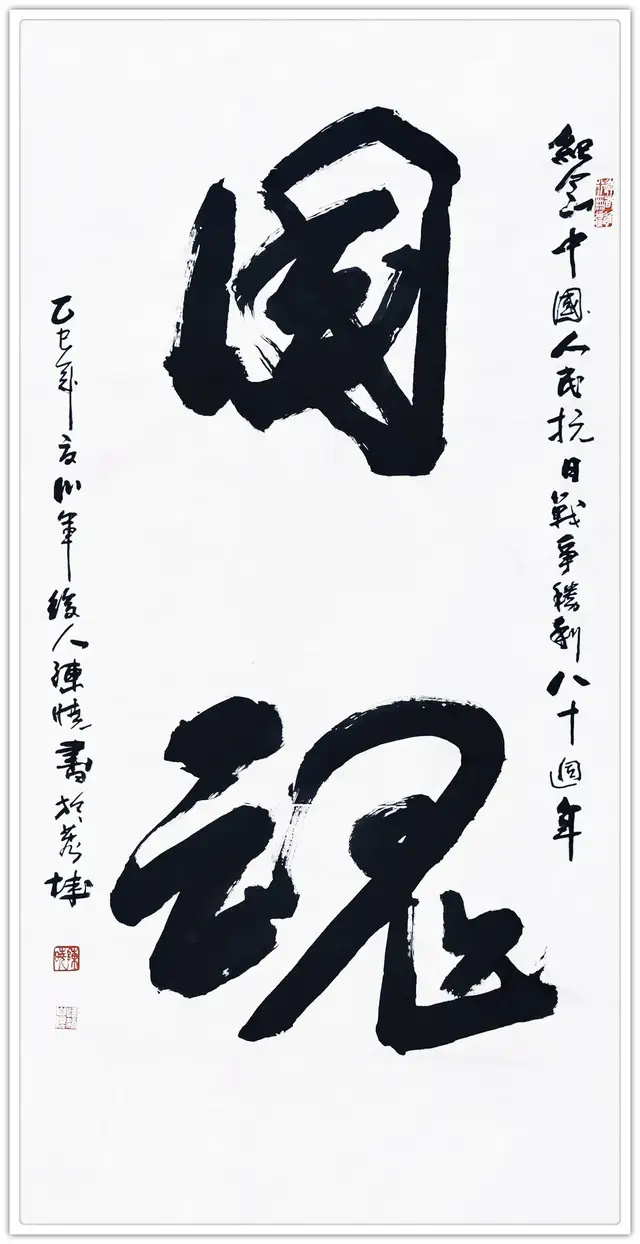 紀念中國人民抗日戰爭勝利八十週年
國魂
乙巳年 年後人陳曉書於
陳曉